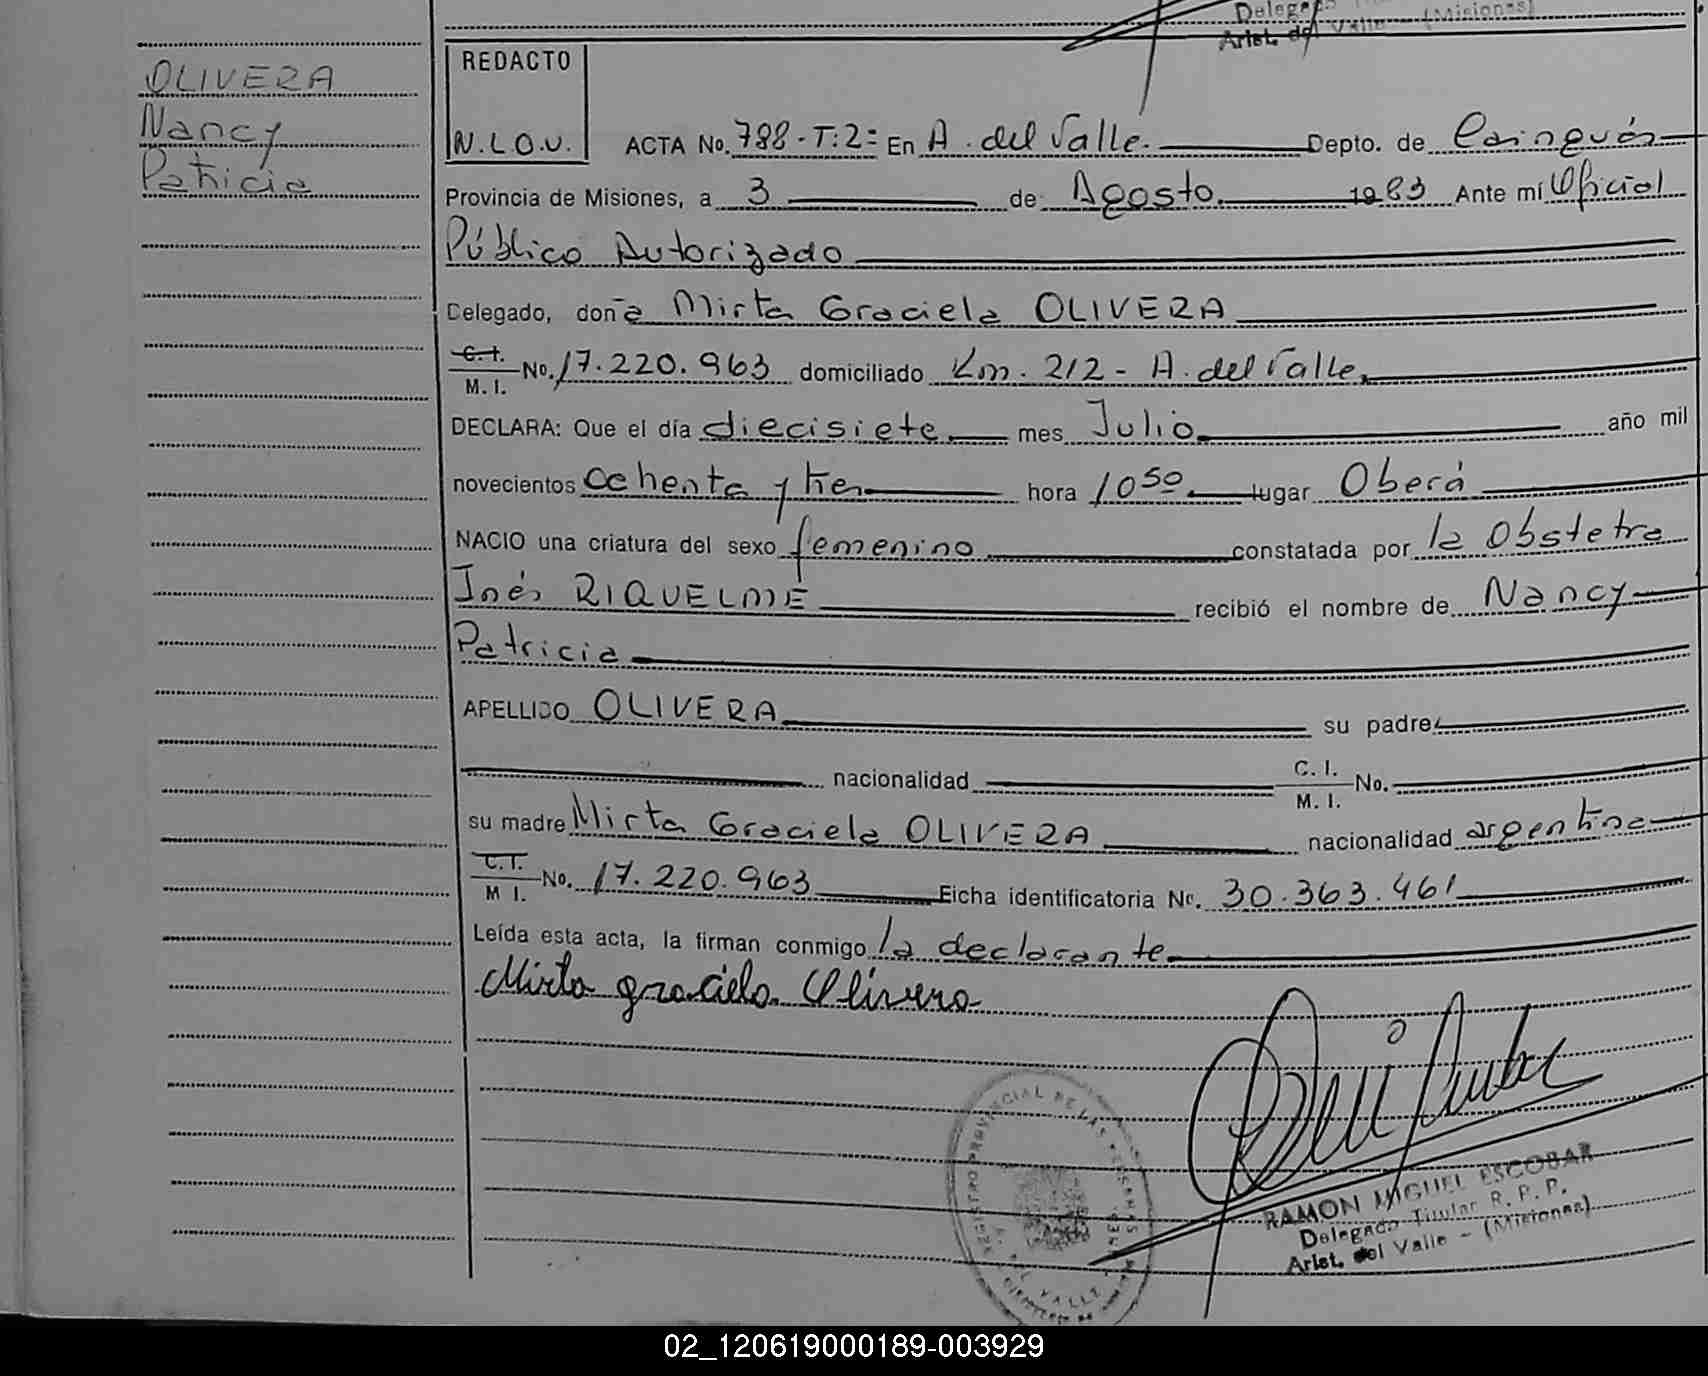 Delegado
Arist. del Valle - (Misiones)
OLIVERA
Nancy
Patricia
REDACTO
N.L.O.V.
ACTA No. 788-T:2= En A. del Valle. Depto. de Cainguás
Provincia de Misiones, a 3 de Agosto 1983 Ante mí Oficial
Público Autorizado
Delegado, doña Mirta Graciela OLIVERA
C.I. M.I. No. 17.220.963 domiciliado Km. 212 - A. del Valle,
DECLARA: Que el día diecisiete mes Julio año mil
novecientos ochenta y tres hora 10 50 lugar Oberá
NACIO una criatura del sexo femenino constatada por la Obstetra
Inés RIQUELME recibió el nombre de Nancy
Patricia
APELLIDO OLIVERA su padre
nacionalidad C. I. M. I. No.
su madre Mirta Graciela OLIVERA nacionalidad argentina
C.I. M I. No. 17.220.963 Ficha identificatoria No. 30.363.461
Leída esta acta, la firman conmigo la declarante
Mirta graciela Olivera
REGISTRO PROVINCIAL DE LAS PERSONAS
DEL VALLE
RAMON MIGUEL ESCOBAR
Delegado Titular R. P. P.
Arist. del Valle - (Misiones)
02_120619000189-003929